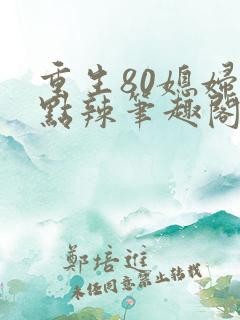 重生80媳婦
點辣筆趣閣
鄭培進
未任同意禁止轉載